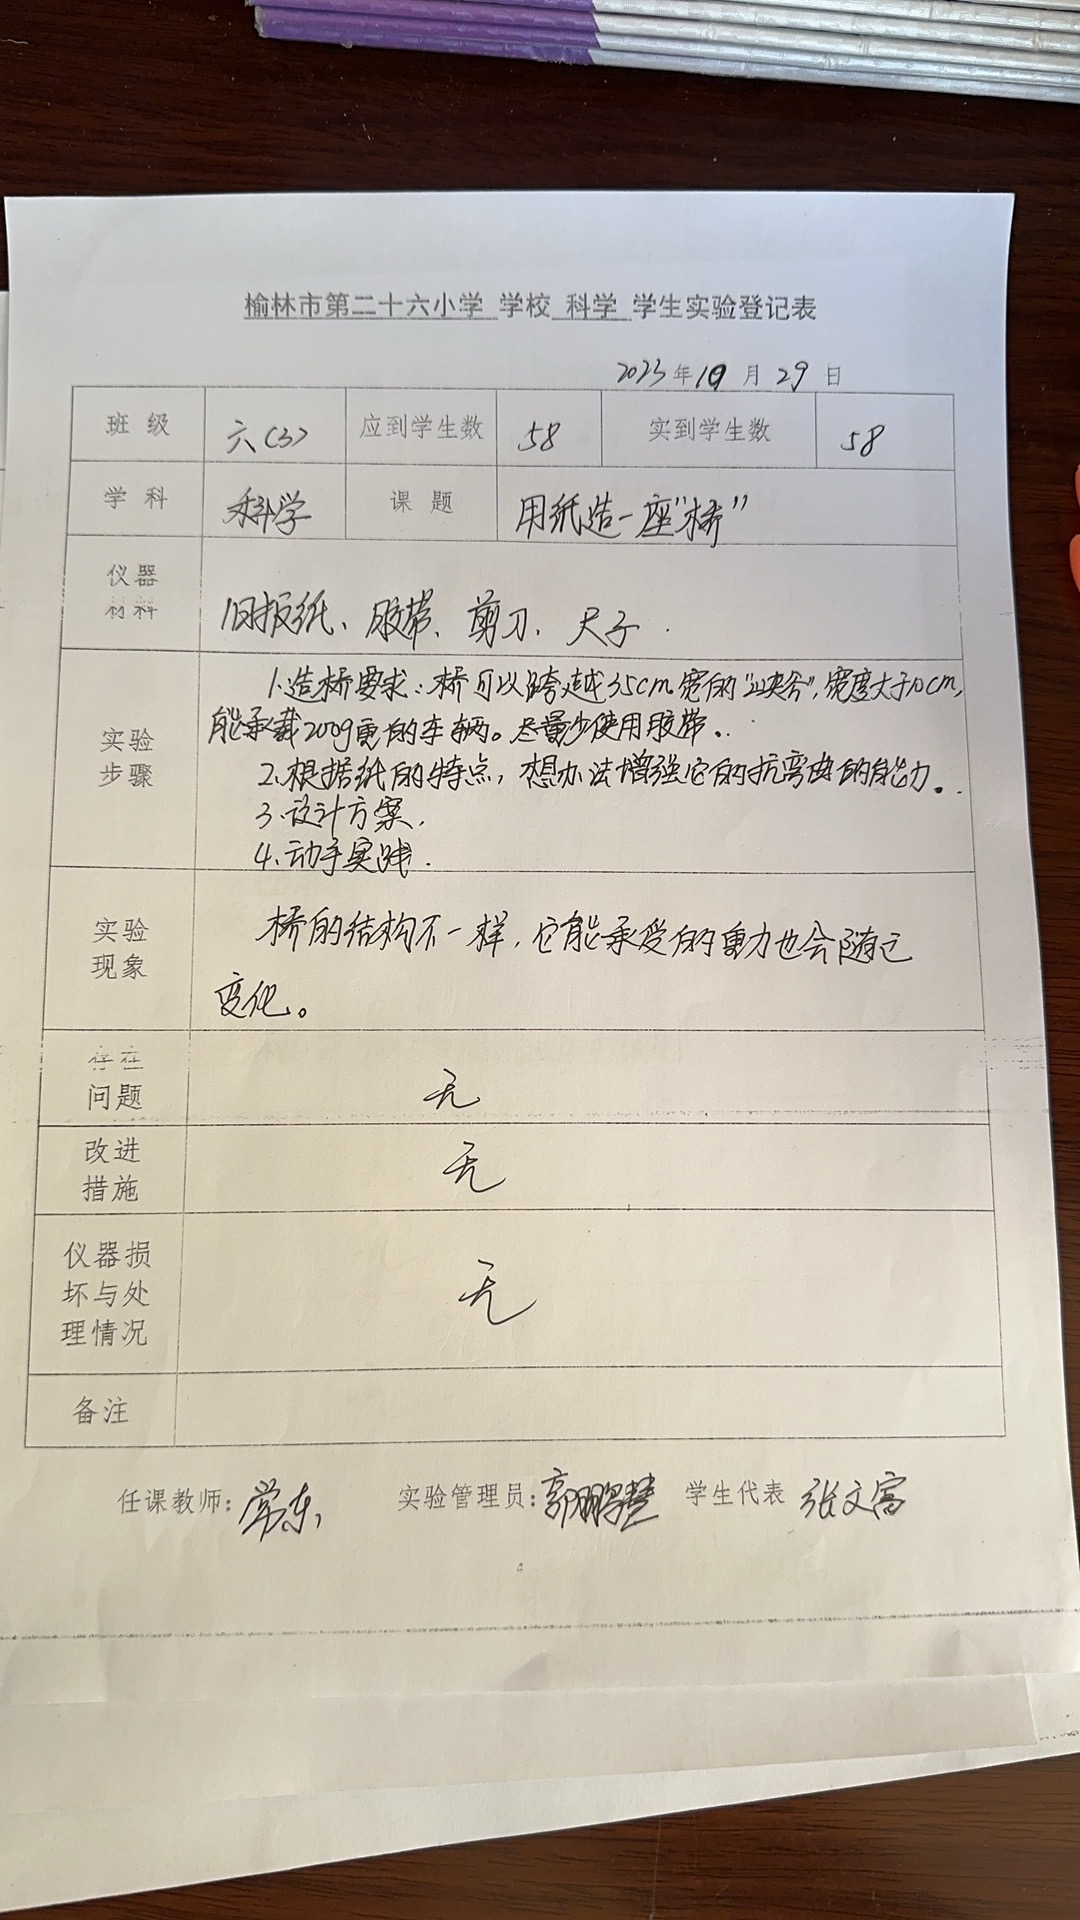 榆林市第二十六小学 学校 科学 学生实验登记表
2023年10月29日
班级 六(3) 应到学生数 58 实到学生数 58
学科 科学 课题 用纸造一座“桥”
仪器
材料
旧报纸、胶带、剪刀、尺子.
实验
步骤
1.造桥要求:桥可以跨越35cm宽的“峡谷”,宽度大于10cm,
能承载200g重的车辆。尽量少使用胶带。
2.根据纸的特点,想办法增强它的抗弯曲的能力。
3.设计方案.
4.动手实践.
实验
现象
桥的结构不一样,它能承受的重力也会随之
变化。
存在
问题
无
改进
措施
无
仪器损
坏与处
理情况
无
备注
任课教师:常东 实验管理员:郭鹏慧 学生代表 张文富